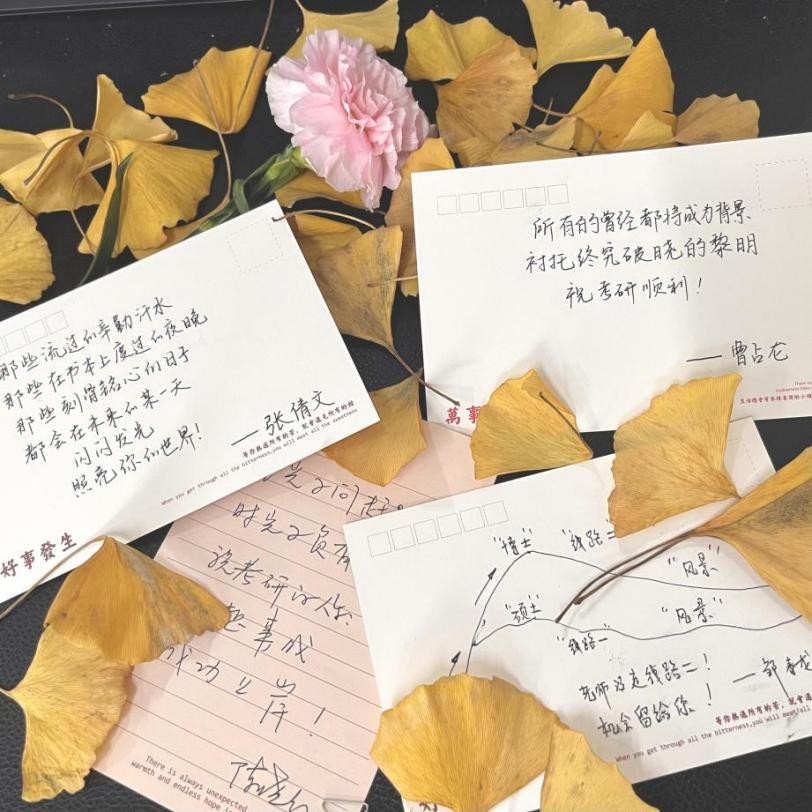 所有的曾经都将成为背景
衬托终究破晓的黎明
祝考研顺利!
——曹占花
萬事
那些流过的辛勤汗水
那些在书本上度过的夜晚
那些刻骨铭心的日子
都会在未来的某一天
闪闪发光
照亮你的世界!
——张倩文
等你熬過所有的苦,就會遇見所有的甜
when you get through all the bitterness,you will meet all the sweetness
好事發生
时光不负有
祝考研的你
事成
成功上岸!
There is always unexpected
warmth and endless hope in
"博士" "线路二"
"风景"
"硕士" "风景"
"线路一"
老师没走线路二!
机会留给你!
等你熬過所有的苦,就會遇
when you get through all the bitterness,you will meet all